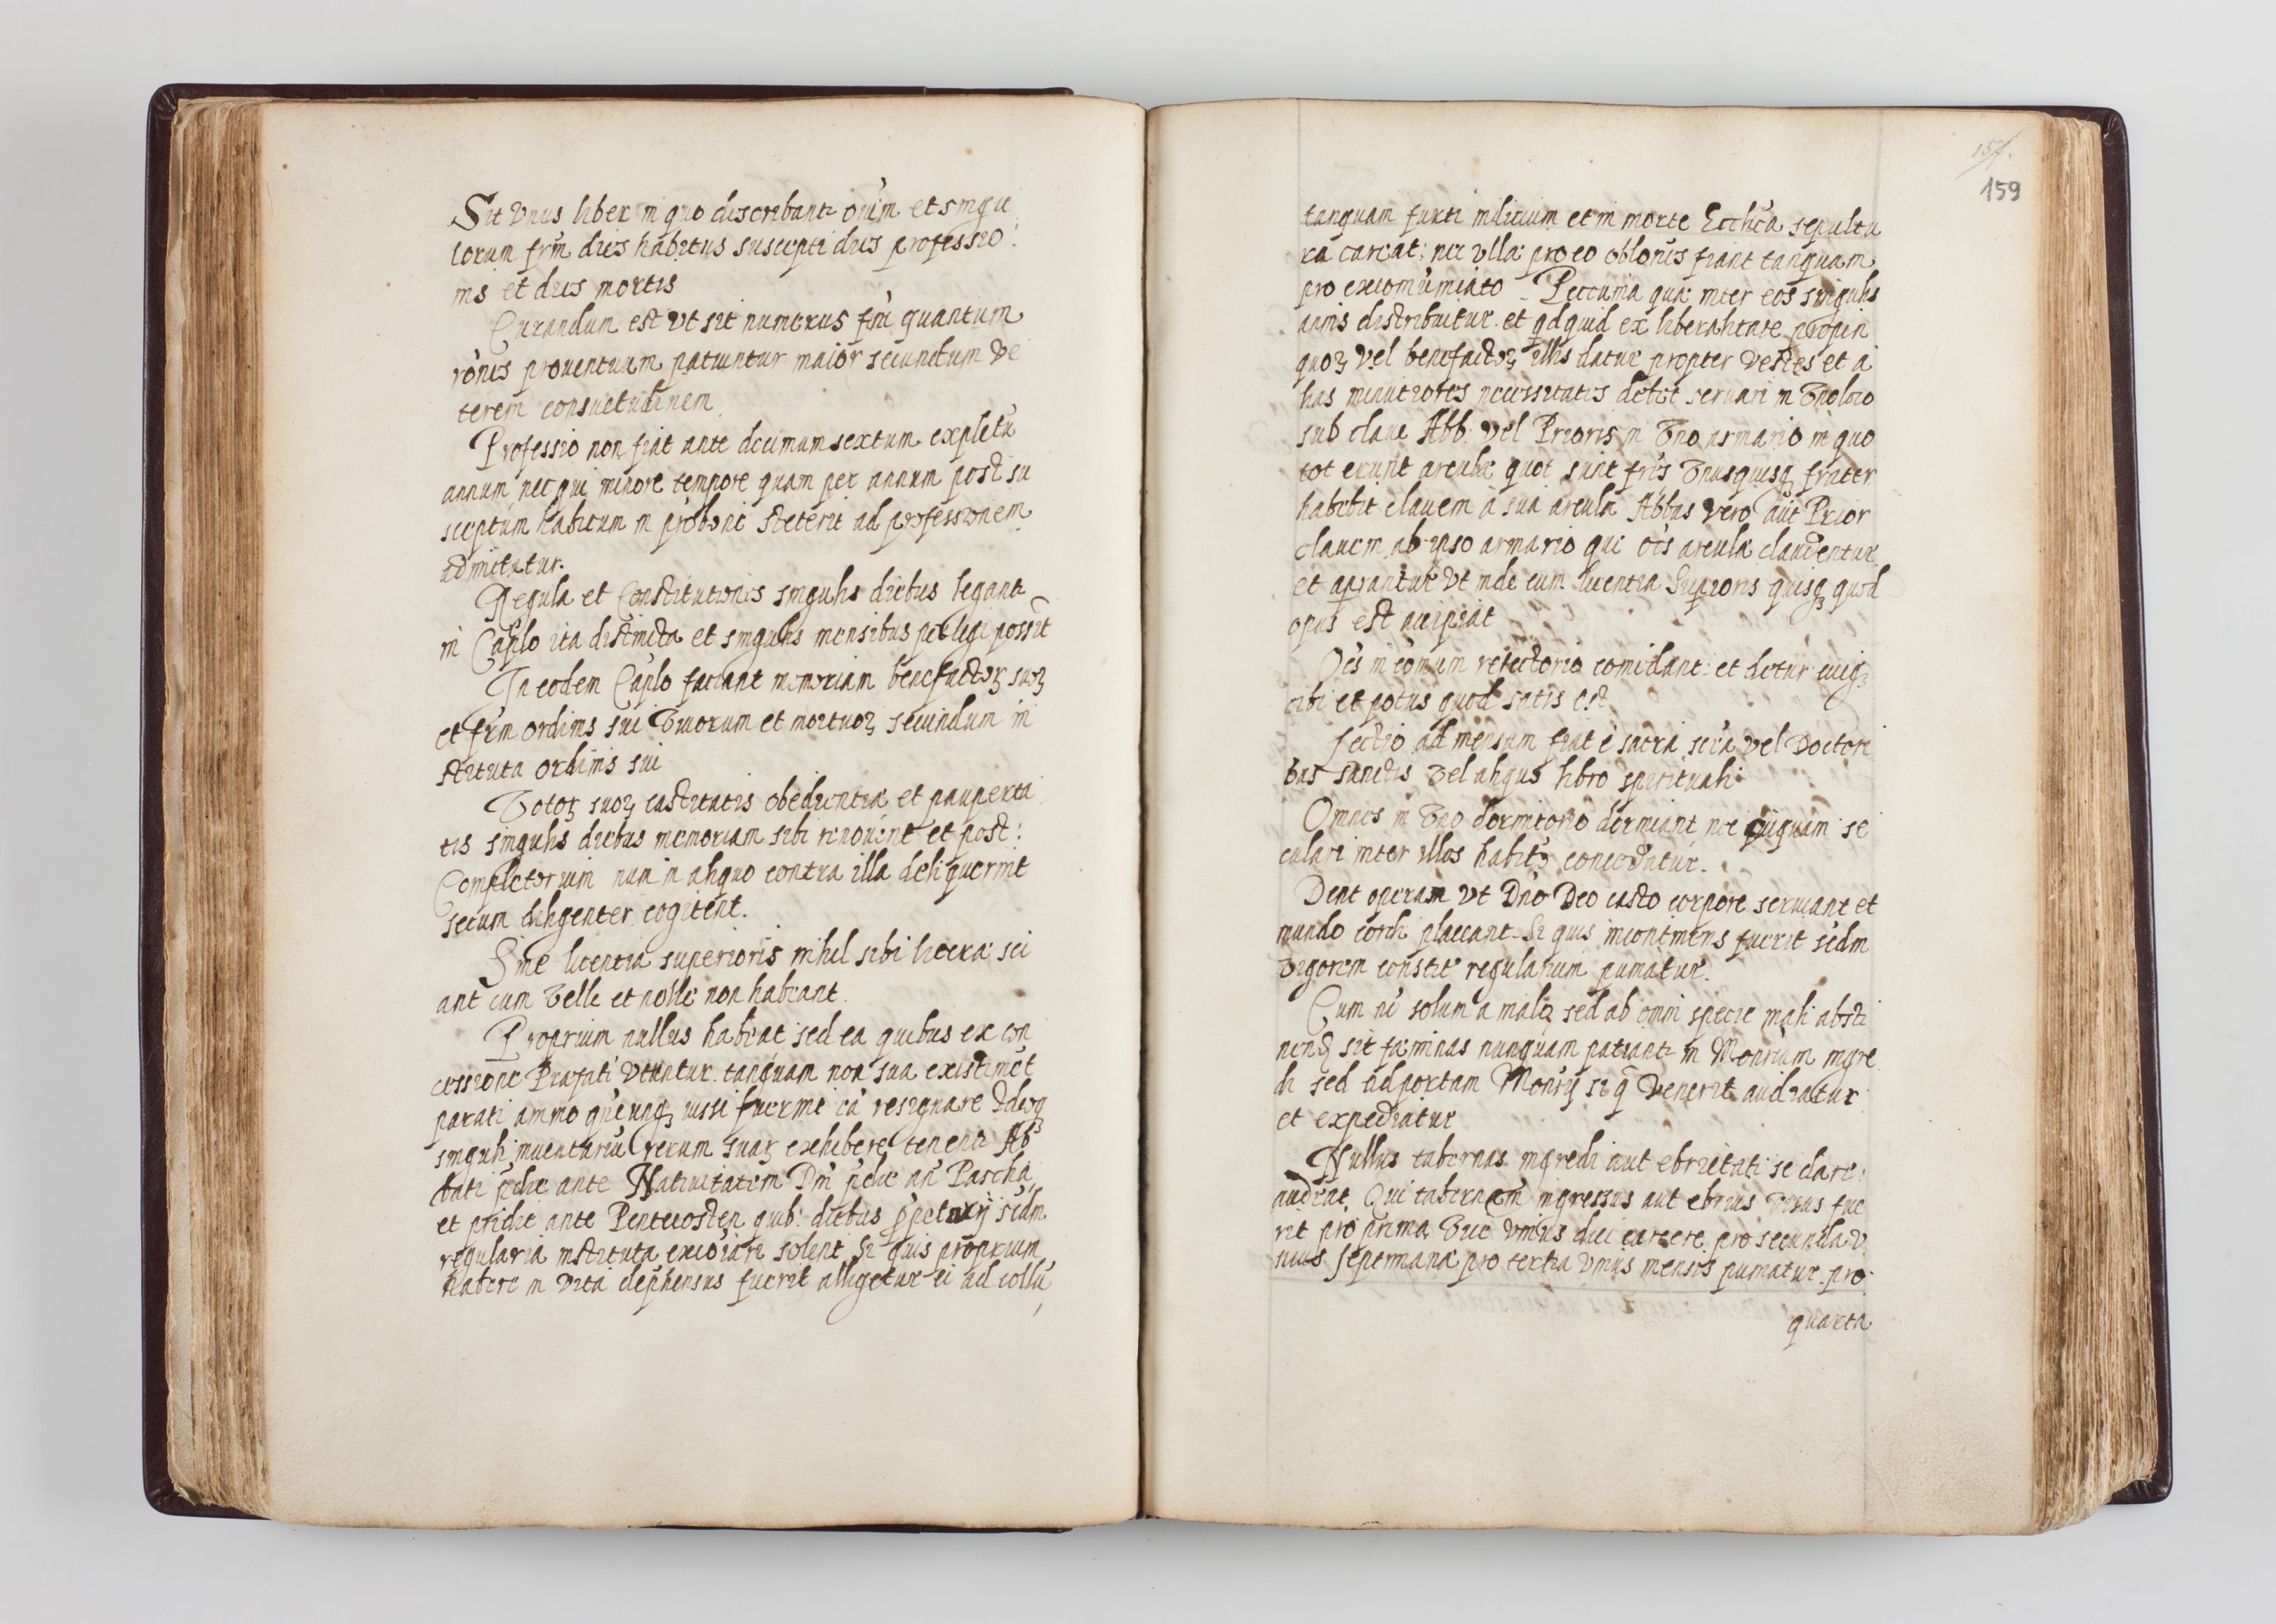 Sit vnus liber in quo discribant omm et singu
lorum frm dies habitus suscepti dies professio:
nis et dies mortis
Curandum est vt sit numerus frm quantum
rones prouentuum patiuntur maior secundum ve
terem consuetudinem
Professio non fiat ante decimum sextum expletu
annum nec qui minore tempore quam per annum post su
sceptum habitum in probone steterit ad professionem
admitatur.
Regula et Constitutiones singulis diebus legant
in Caplo ita distincta et singulis mensibus perlegi possit
In eodem Caplo faciant memoriam benefactoꝝ suoꝝ
et frm ordinis sui viuorum et mortuoꝝ secundum in
stituta ordinis sui
Votoꝝ suoꝝ castitatis obedientiæ et pauperta
tis singulis diebus memoriam sibi renouent et post:
Completorium num in aliquo contra illa deliquerint
secum diligenter cogitent.
Sine licentia superioris nihil sibi licere sci
ant cum velle et nolle non habeant.
Proprium nullus habeat sed ea quibus ex con
cessione Præfati vtuntur tanquam non sua existimet
parati animo qncunqꝫ iussi fuerint ea resignare Ideoqꝫ
singuli inuentariu rerum suaꝝ exhibere tenent Ab
bati pdie ante Natiuitatem Dni pdie an Pascha
et pridie ante Pentecosten quib. diebus ppetarij sedm
regularia instituta excoiari solent Si quis proprium
habere in vita dephensus fuerit alligetur ei ad collu
157.
159
tanquam furti indicium et in morte Ecclica sepultu
ra careat: nec vlla pro eo oblones fiant tanquam
pro excomuniato Peccunia quæ inter eos singulis
annis distribuitur et qdquid ex liberalitate propin
quoꝝ vel benefactoꝝ illis datur propter vestes et a
lias minutiores necessitates debet seruari in vno loco
sub claue Abb. vel Prioris in vno armario in quo
tot erunt arculæ quot sunt fres vnusquisqꝫ frater
habebit clauem a sua arcula Abbas vero aut Prior
clauem ab ipso armario quo oes arculæ claudentur
et apiantur vt inde cum licentia Supioris quisqꝫ quod
opus est accipiat
Oes in comum refectorio comedant: et detur cuiqꝫ
cibi et potus quod satis est
Lectio ad mensam fiat e sacra scra vel Doctori
bus sanctis vel aliquo libro spirituali
Omnes in vno dormitorio dormiant nec cuiquam se
culari inter illos habito concedatur.
Dent operam vt Dno Deo casto corpore seruiant et
mundo corde placeant Si quis incontinens fuerit sedm
vigorem constit regularium puniatur.
Cum no solum a malo sed ab omni specie mali absti
nend sit fæminas nunquam patiant in Monrium ingre
di sed ad portam Monrij si q venerit audiatur
et expediatur
Nullus tabernas ingredi aut ebrietati se dare:
audeat. Qui tabernam ingressus aut ebrius visus fue
rit pro prima vice vnius diei carcere pro secunda v
nius septimanæ pro tertia vnius mensis puniatur pro
quarta